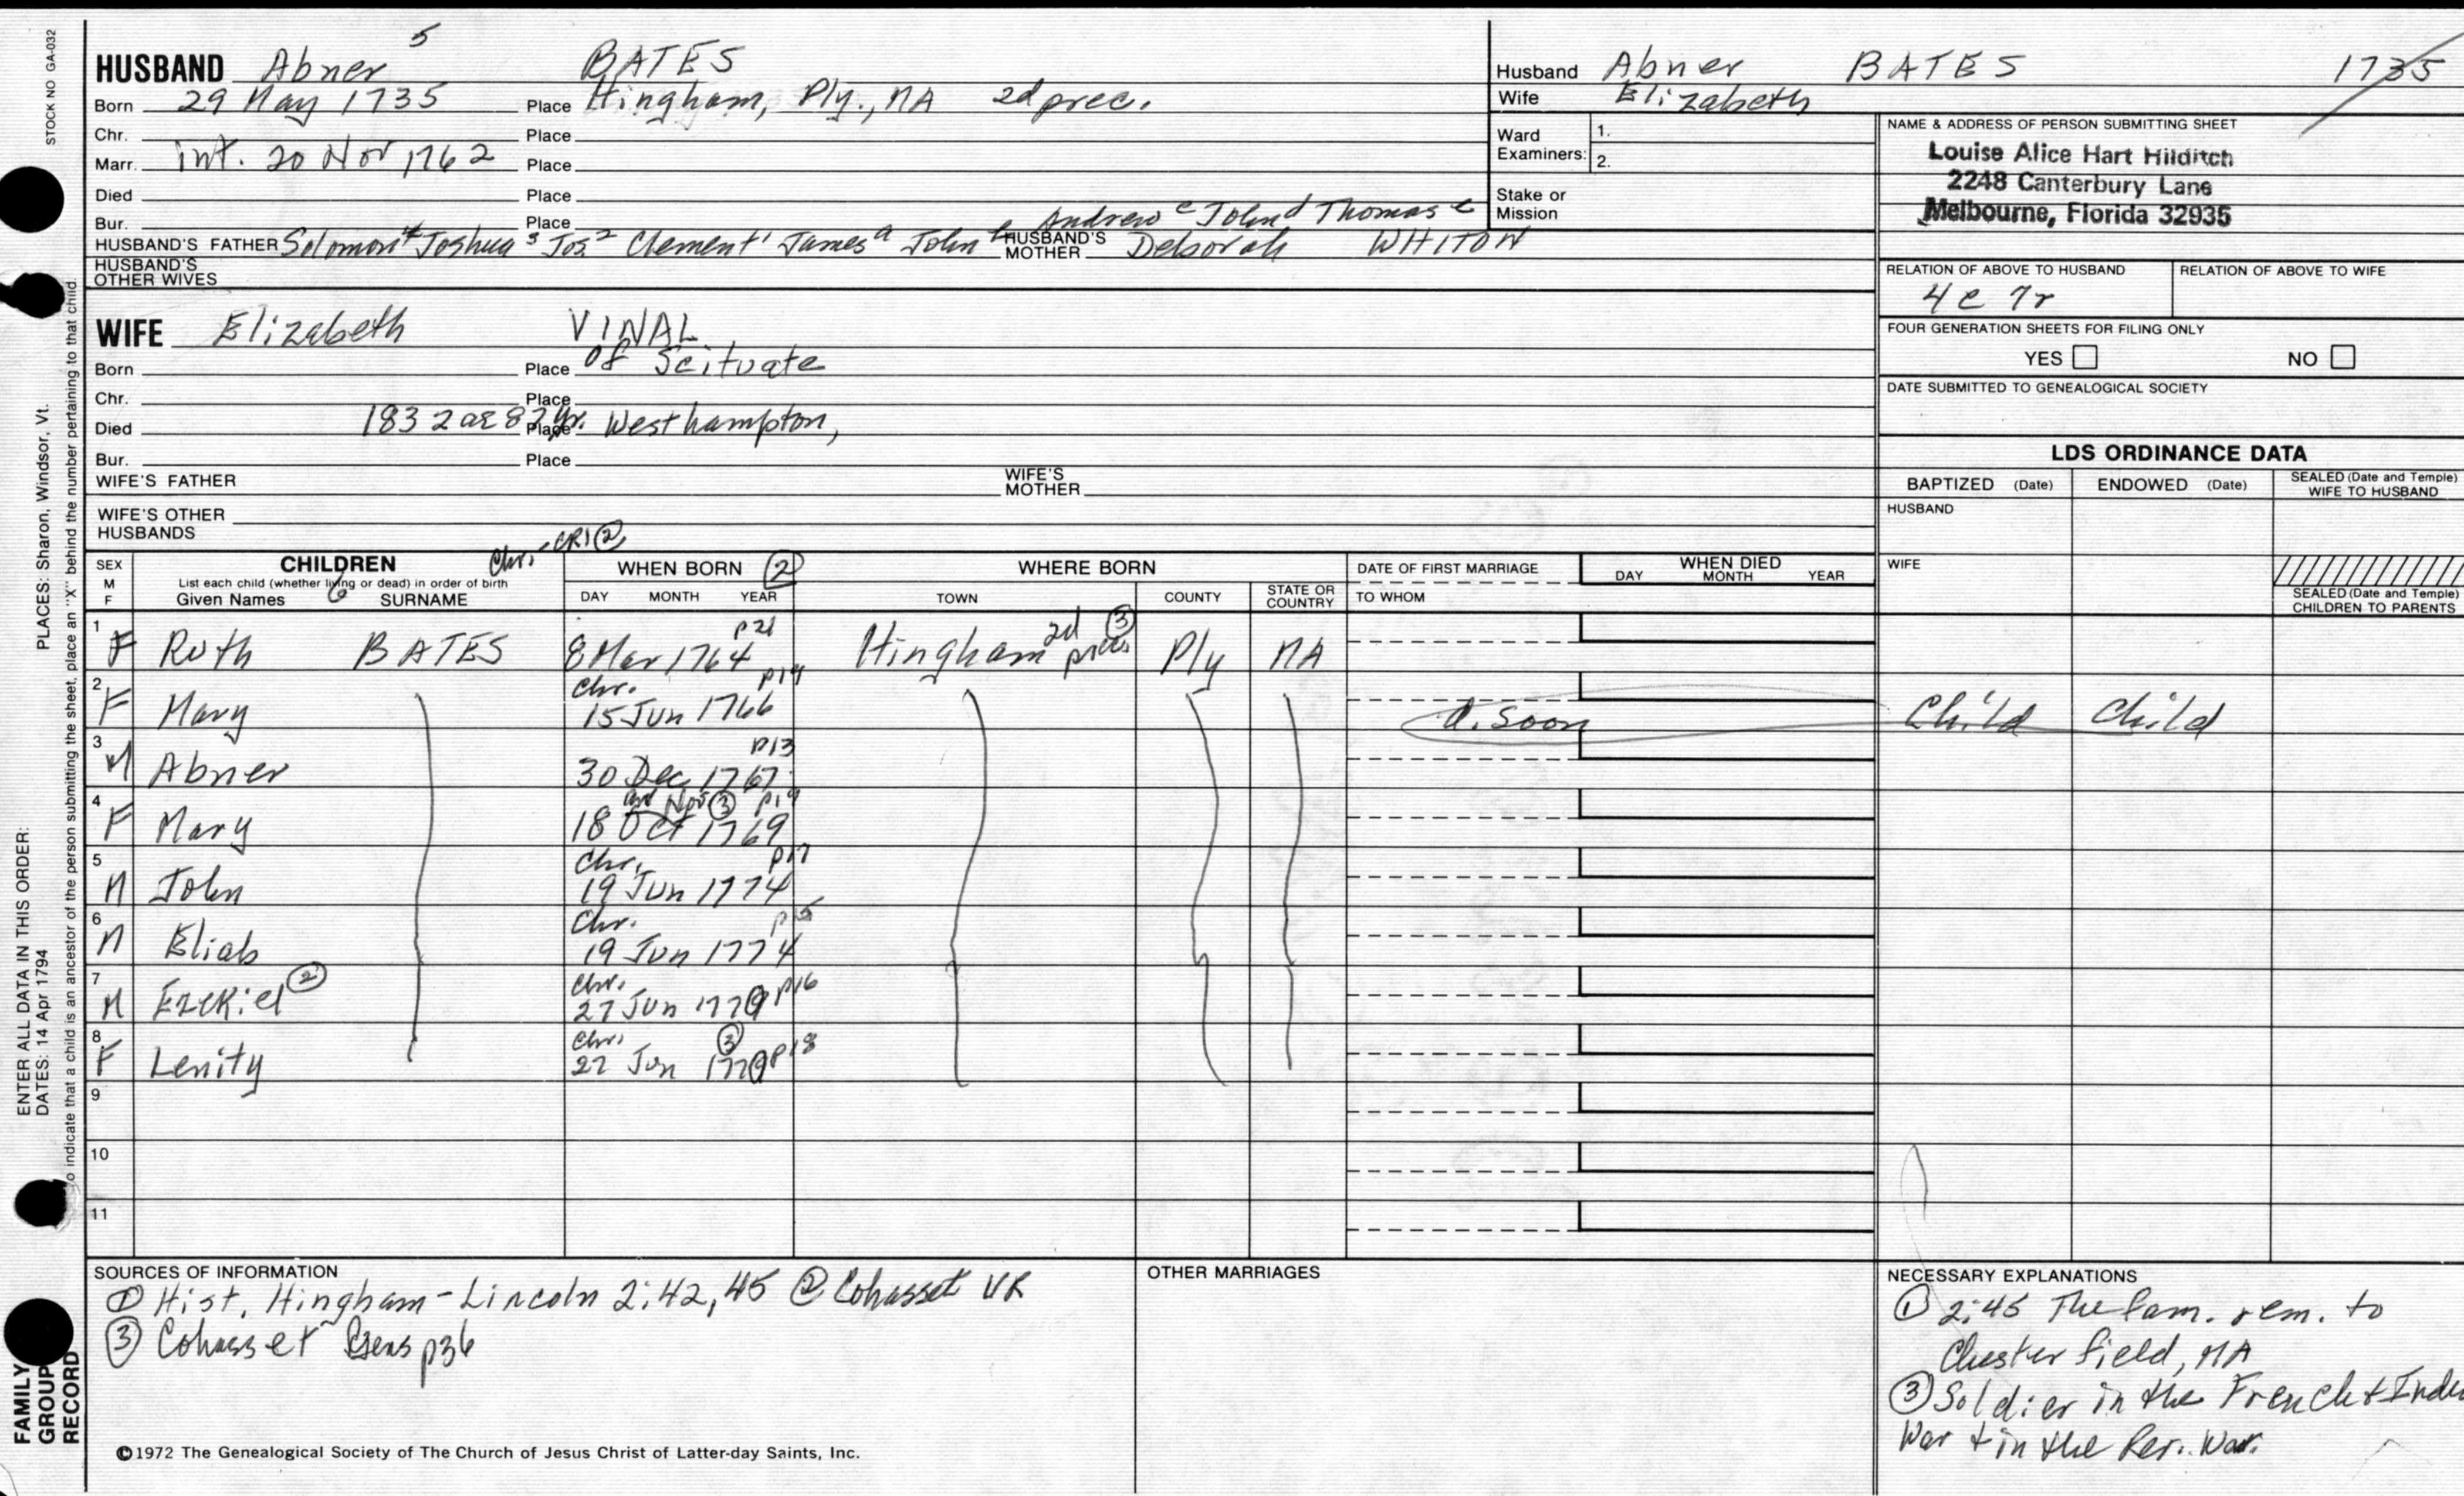 STOCK NO GA-032
HUSBAND Abner 5 BATES
Born 29 May 1735 Place Hingham, Ply., MA 2d prec.
Chr. Place
Marr. int. 20 Nov 1762 Place
Died Place
Bur. Place
Andrew e John d Thomas c
HUSBAND'S FATHER Solomon 4 Joshua 3 Jos. 2 Clement 1 James a John b HUSBAND'S MOTHER Deborah WHITON
HUSBAND'S OTHER WIVES
WIFE Elizabeth VINAL
Born Place of Scituate
Chr. Place
Died 1832 ae 87 yr. Place Westhampton,
Bur. Place
WIFE'S FATHER WIFE'S MOTHER
WIFE'S OTHER HUSBANDS
Husband Abner BATES 1735
Wife Elizabeth
Ward Examiners: 1.
2.
Stake or Mission
NAME & ADDRESS OF PERSON SUBMITTING SHEET
Louise Alice Hart Hilditch
2248 Canterbury Lane
Melbourne, Florida 32935
RELATION OF ABOVE TO HUSBAND RELATION OF ABOVE TO WIFE
4c 7r
FOUR GENERATION SHEETS FOR FILING ONLY
YES NO
DATE SUBMITTED TO GENEALOGICAL SOCIETY
LDS ORDINANCE DATA
BAPTIZED (Date) ENDOWED (Date) SEALED (Date and Temple) WIFE TO HUSBAND
HUSBAND
WIFE
SEALED (Date and Temple) CHILDREN TO PARENTS
Chr. - CR1 ②
SEX M F CHILDREN WHEN BORN ② WHERE BORN DATE OF FIRST MARRIAGE WHEN DIED
List each child (whether living or dead) in order of birth
Given Names 6 SURNAME DAY MONTH YEAR TOWN COUNTY STATE OR COUNTRY TO WHOM DAY MONTH YEAR
1 F Ruth BATES 8 Mar 1764 p21 Hingham 2d prec. ③ Ply MA
2 F Mary Chr. 15 Jun 1766 p19 d. soon Child Child
3 M Abner 30 Dec 1767 p13
4 F Mary 18 Oct 1769 or Nov ③ p19
5 M John Chr. 19 Jun 1774 p17
6 M Eliab Chr. 19 Jun 1774 p15
7 M Ezekiel ② Chr. 27 Jun 1779 p16
8 F Lenity Chr. 27 Jun 1779 ③ p18
9
10
11
SOURCES OF INFORMATION
① Hist. Hingham - Lincoln 2:42, 45 ② Cohasset VR
③ Cohasset Gens p36
OTHER MARRIAGES
NECESSARY EXPLANATIONS
① 2:45 The fam. rem. to
Chesterfield, MA
③ Soldier in the French &
War & in the Rev. War.
©1972 The Genealogical Society of The Church of Jesus Christ of Latter-day Saints, Inc.
FAMILY GROUP RECORD
ENTER ALL DATA IN THIS ORDER:
DATES: 14 Apr 1794
PLACES: Sharon, Windsor, Vt.
o indicate that a child is an ancestor of the person submitting the sheet, place an "X" behind the number pertaining to that child.